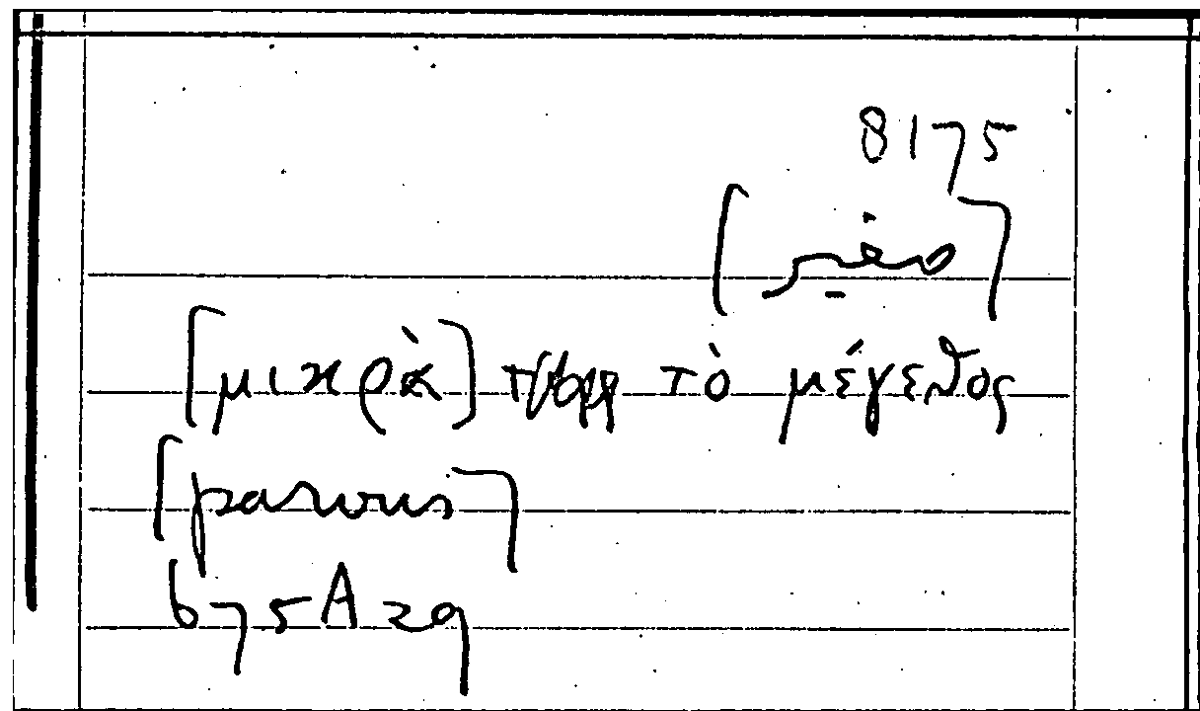 8175
[صغير]
[μικρὰ] τὸ μέγεθος
[parvus]
675A29